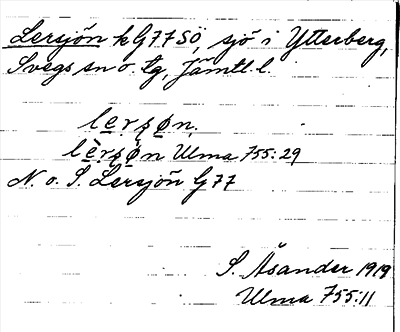 Lersjön kG77SÖ, sjö i Ytterberg,
Svegs sn o. tg, Jämtl. l.
lerʂøn.
lèrʂøn Ulma 755:29
N. o. S. Lersjön G77
S. Åsander 1919
Ulma 755:11